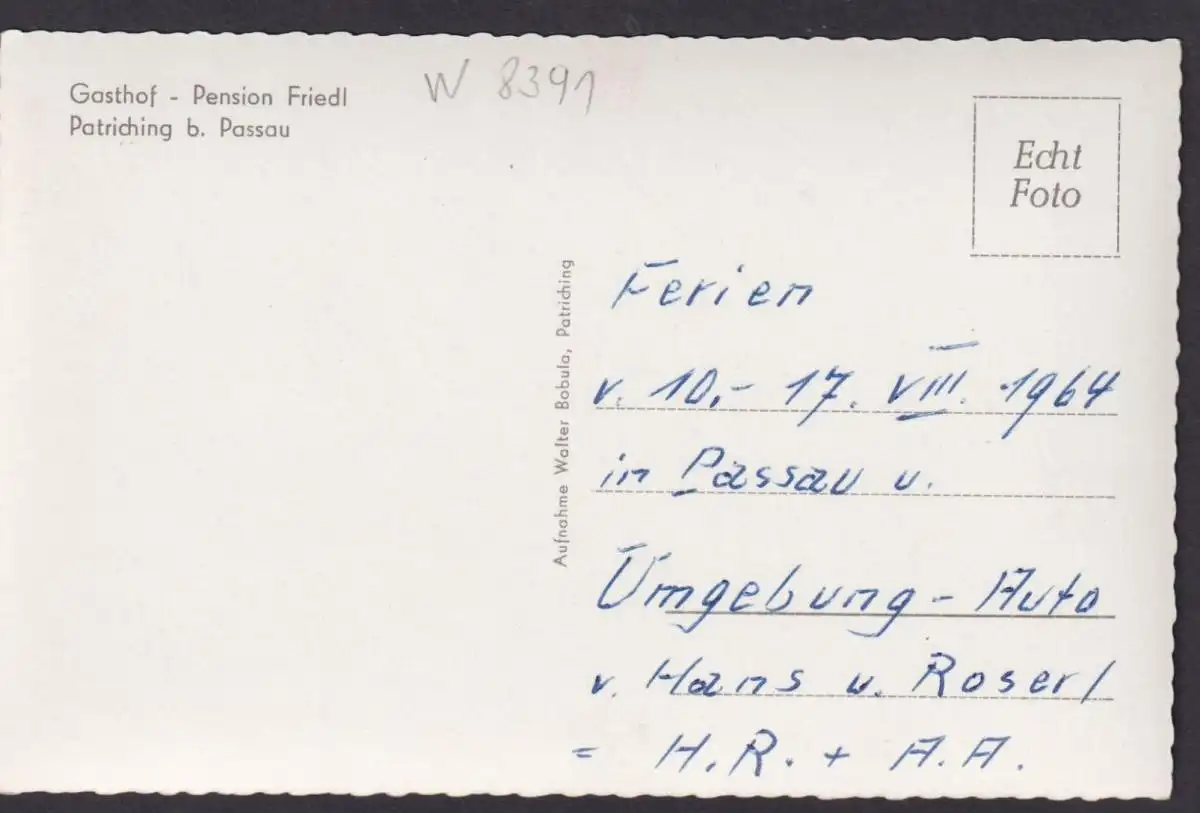 Gasthof - Pension Friedl
Patriching b. Passau
W 8391
Echt
Foto
Aufnahme Walter Babula, Patriching
Ferien
v. 10.- 17. VIII. 1964
in Passau u.
Umgebung - Auto
v. Hans u. Roserl
= H.R. + A.A.